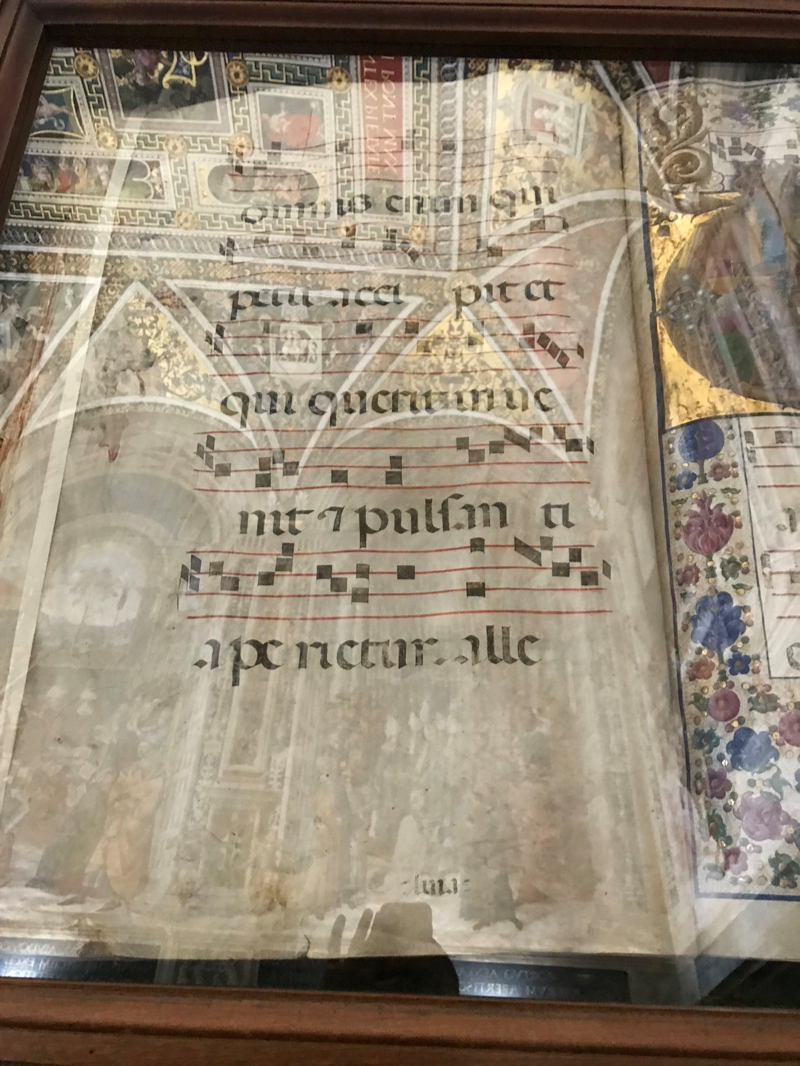 Omnis enim qui
petit acci pit et
qui querit in ue
nit ⁊ pulsan ti
ape rietur. alle
:luia: